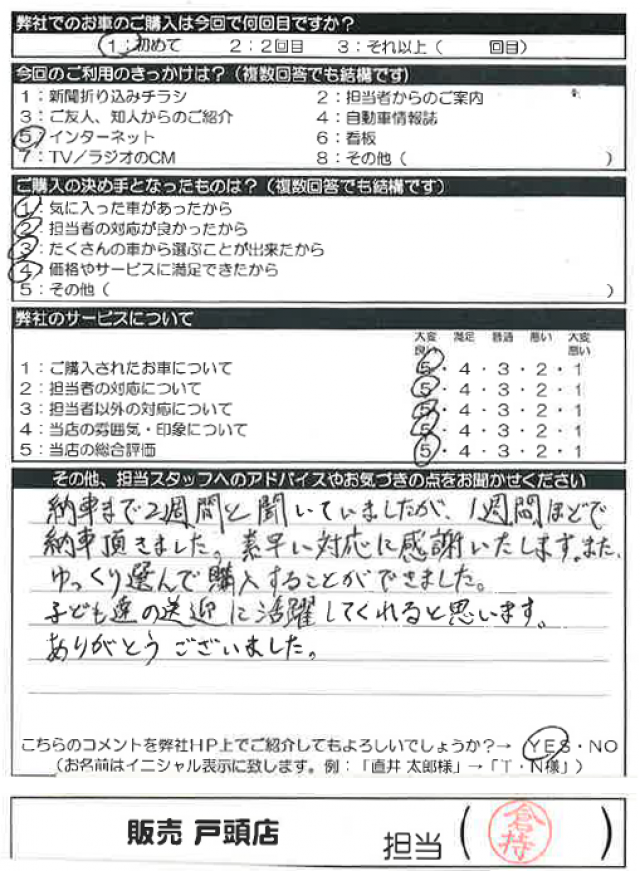 弊社でのお車のご購入は今回で何回目ですか?
1:初めて 2:2回目 3:それ以上( 回目)
今回のご利用のきっかけは?(複数回答でも結構です)
1:新聞折り込みチラシ 2:担当者からのご案内
3:ご友人、知人からのご紹介 4:自動車情報誌
5:インターネット 6:看板
7:TV/ラジオのCM 8:その他( )
ご購入の決め手となったものは?(複数回答でも結構です)
1:気に入った車があったから
2:担当者の対応が良かったから
3:たくさんの車から選ぶことが出来たから
4:価格やサービスに満足できたから
5:その他( )
弊社のサービスについて
大変良い 満足 普通 悪い 大変悪い
1:ご購入されたお車について 5・4・3・2・1
2:担当者の対応について 5・4・3・2・1
3:担当者以外の対応について 5・4・3・2・1
4:当店の雰囲気・印象について 5・4・3・2・1
5:当店の総合評価 5・4・3・2・1
その他、担当スタッフへのアドバイスやお気づきの点をお聞かせください
納車まで2週間と聞いていましたが、1週間ほどで
納車頂きました。素早い対応に感謝いたします。また、
ゆっくり選んで購入することができました。
子ども達の送迎に活躍してくれると思います。
ありがとうございました。
こちらのコメントを弊社HP上でご紹介してもよろしいでしょうか?→ YES・NO
(お名前はイニシャル表示に致します。例:「直井 太郎様」→「T・N様」)
販売 戸頭店 担当(倉持)